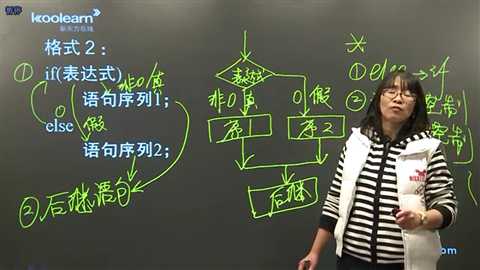 koolearn
新东方在线
格式2：
① if(表达式)
非0/真
语句序列1；
0
else
假
语句序列2；
② 后继语句
表达式
非0 真
0 假
序1
序2
后继
① else → if
②
控制
控制
com